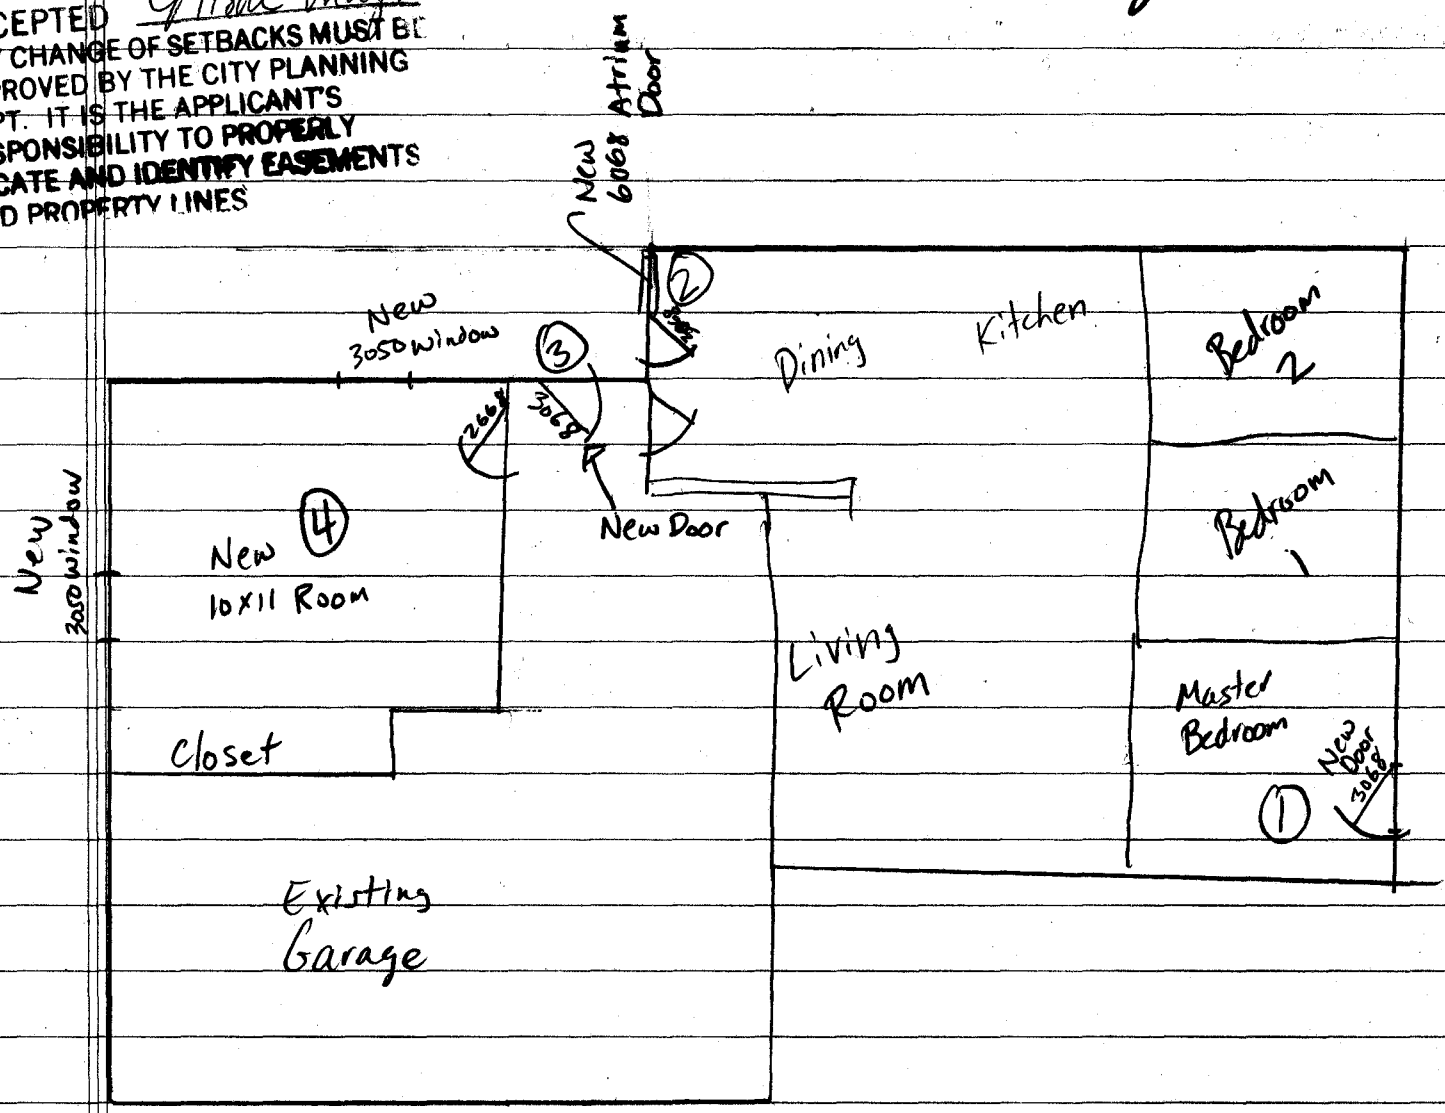 CEPTED
CHANGE OF SETBACKS MUST BE
ROVED BY THE CITY PLANNING
PT. IT IS THE APPLICANT'S
SPONSIBILITY TO PROPERLY
CATE AND IDENTIFY EASEMENTS
D PROPERTY LINES
New
6068 Atrium
Door
2
New
3050 window
3
3068
2668
New Door
Dining
Kitchen
Bedroom
2
Bedroom
1
New
3050 window
4
New
10x11 Room
Closet
Living
Room
Master
Bedroom
New
Door
3068
1
Existing
Garage